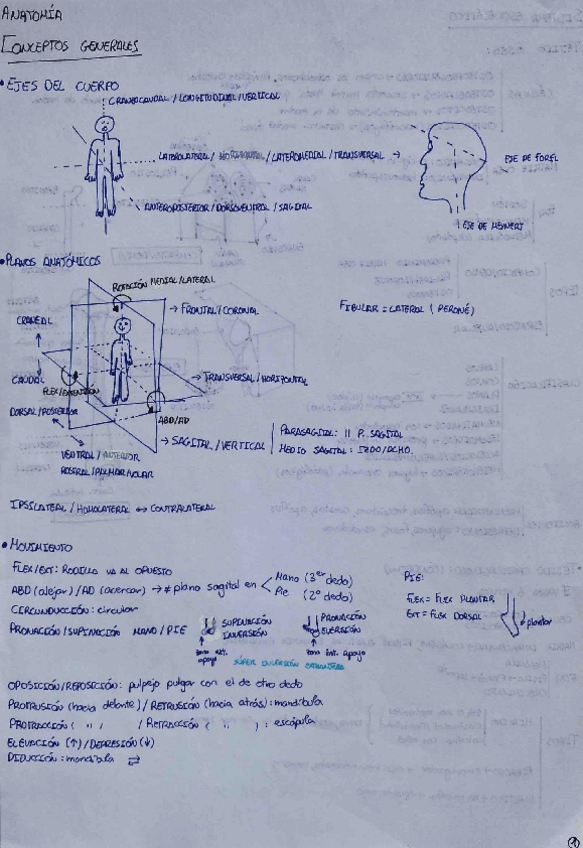 ANATOMÍA
CONCEPTOS GENERALES
• EJES DEL CUERPO
CRANEOCAUDAL / LONGITUDINAL / VERTICAL
LATEROLATERAL / HORIZONTAL / LATEROMEDIAL / TRANSVERSAL →
EJE DE FOREL
ANTEROPOSTERIOR / DORSOVENTRAL / SAGITAL
EJE DE MEINERT
• PLANOS ANATÓMICOS
ROTACIÓN MEDIAL / LATERAL
→ FRONTAL / CORONAL
FIBULAR = LATERAL (PERONÉ)
CRANEAL
CAUDAL
→ TRANSVERSAL / HORIZONTAL
FLEX / EXTENSIÓN
DORSAL / POSTERIOR
ABD/AD
→ SAGITAL / VERTICAL
PARASAGITAL: II P. SAGITAL
MEDIO SAGITAL: IZDO/DCHO.
VENTRAL / ANTERIOR
ROSTRAL / PALMAR / VOLAR
IPSILATERAL / HOMOLATERAL ↔ CONTRALATERAL
• MOVIMIENTO
FLEX/EXT: RODILLA VA AL OPUESTO
ABD (alejar) / AD (acercar) → ≠ plano sagital en
Mano (3er dedo)
Pie (2º dedo)
PIE:
FLEX = FLEX PLANTAR
EXT = FLEX DORSAL
plantar
CIRCUNDUCCIÓN: circular
PRONACIÓN / SUPINACIÓN MANO / PIE
SUPINACIÓN
INVERSIÓN
PRONACIÓN
EVERSIÓN
zona ext. apoyo
zona int. apoyo
OPOSICIÓN / REPOSICIÓN: pulpejo pulgar con el de otro dedo
PROTRUSIÓN (hacia delante) / RETRUSIÓN (hacia atrás): mandíbula
PROTRACCIÓN ( " ," ) / RETRACCIÓN ( " ," ): escápula
ELEVACIÓN (↑) / DEPRESIÓN (↓)
DIDUCCIÓN: mandíbula ⇄
1